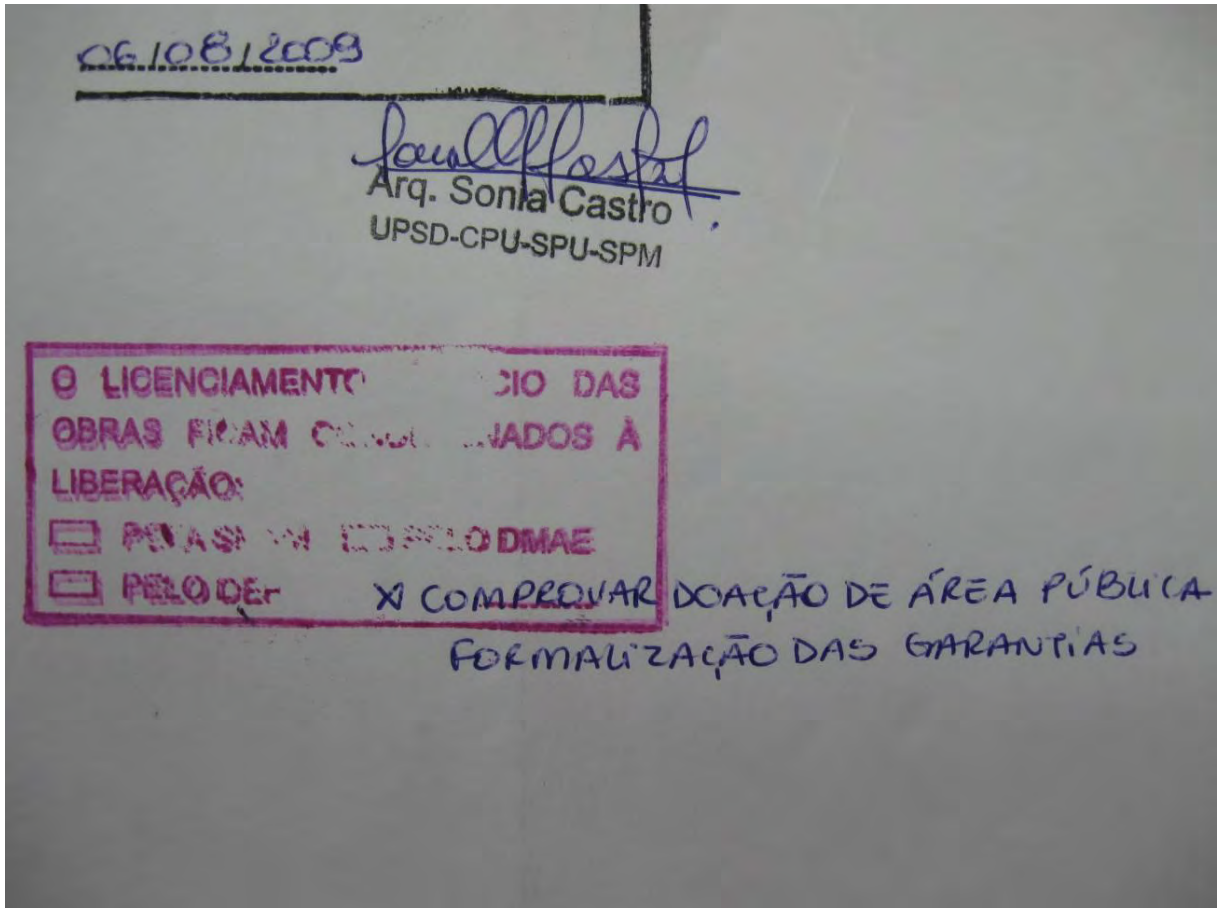 06/08/2009
Arq. Sonia Castro
UPSD-CPU-SPU-SPM
O LICENCIAMENTO DAS
OBRAS FICAM À
LIBERAÇÃO:
PELO DMAE
PELO
X COMPROVAR DOAÇÃO DE ÁREA PÚBLICA
FORMALIZAÇÃO DAS GARANTIAS